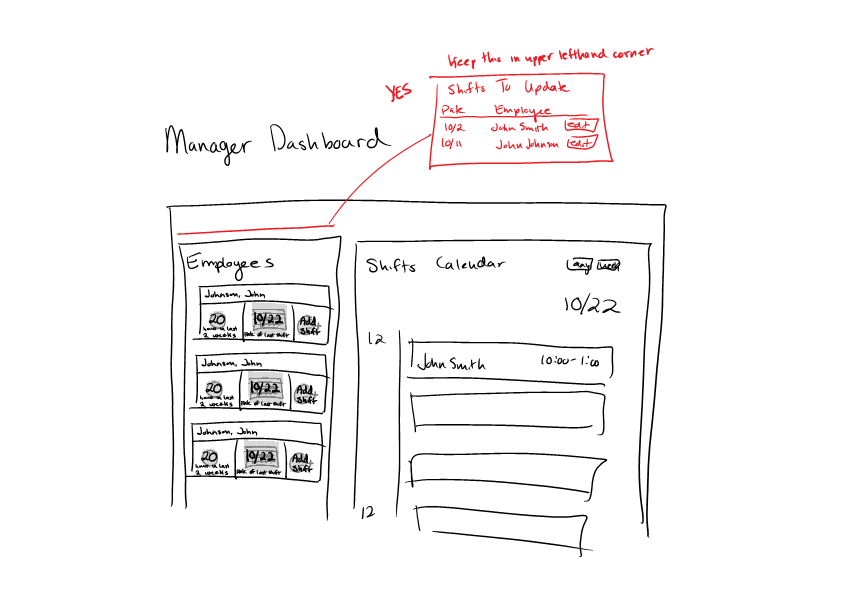 Keep this in upper lefthand corner
YES
Shifts To Update
Date Employee
10/2 John Smith edit
10/11 John Johnson edit
Manager Dashboard
Employees
Johnson, John
20
hours in last
2 weeks
10/22
Date of last shift
Add
Shift
Johnson, John
20
hours in last
2 weeks
10/22
Date of last shift
Add
Shift
Johnson, John
20
hours in last
2 weeks
10/22
Date of last shift
Add
Shift
Shifts Calendar
day week
10/22
12
John Smith 10:00-1:00
12